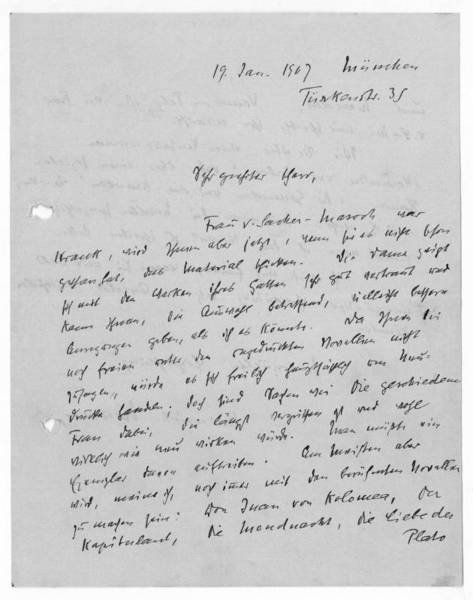 19. Jan. 1907 München
Türkenstr. 35
Sehr geehrter Herr,
Frau v. Sacher-Masoch war
krank, wird Ihnen aber jetzt, wenn sie es nicht schon
gethan hat, das Material schicken. Die Dame zeigt
sich mit den Werken ihres Gatten sehr gut vertraut und
kann Ihnen, die Auswahl betreffend, vielleicht bessere
Anregungen geben, als ich es könnte. Da Ihnen die
noch freien unter den ungedruckten Novellen nicht
zusagen, würde es sich freilich hauptsächlich um Neu-
drucke handeln; doch sind Sachen wie Die geschiedene
Frau dabei, die längst vergriffen ist und wohl
wirklich wie neu wirken würde. Man müßte ein
Exemplar davon auftreiben. Am Meisten aber
wird, meine ich, noch immer mit den berühmten Novellen
zu machen sein: Don Juan von Kolomea, Der
Kapitulant, Die Mondnacht, Die Liebe des
Plato